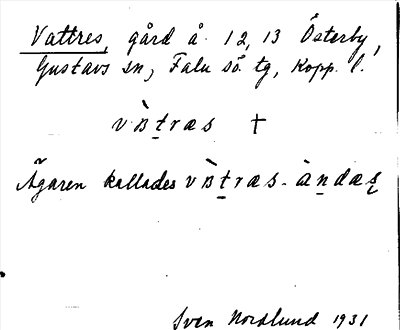 Vattres, gård å 12, 13 Österby,
Gustavs sn, Falu sö. tg, Kopp. l.
vàtræs †
Ägaren kallades vàtræs-àndæs
Sven Nordlund 1931